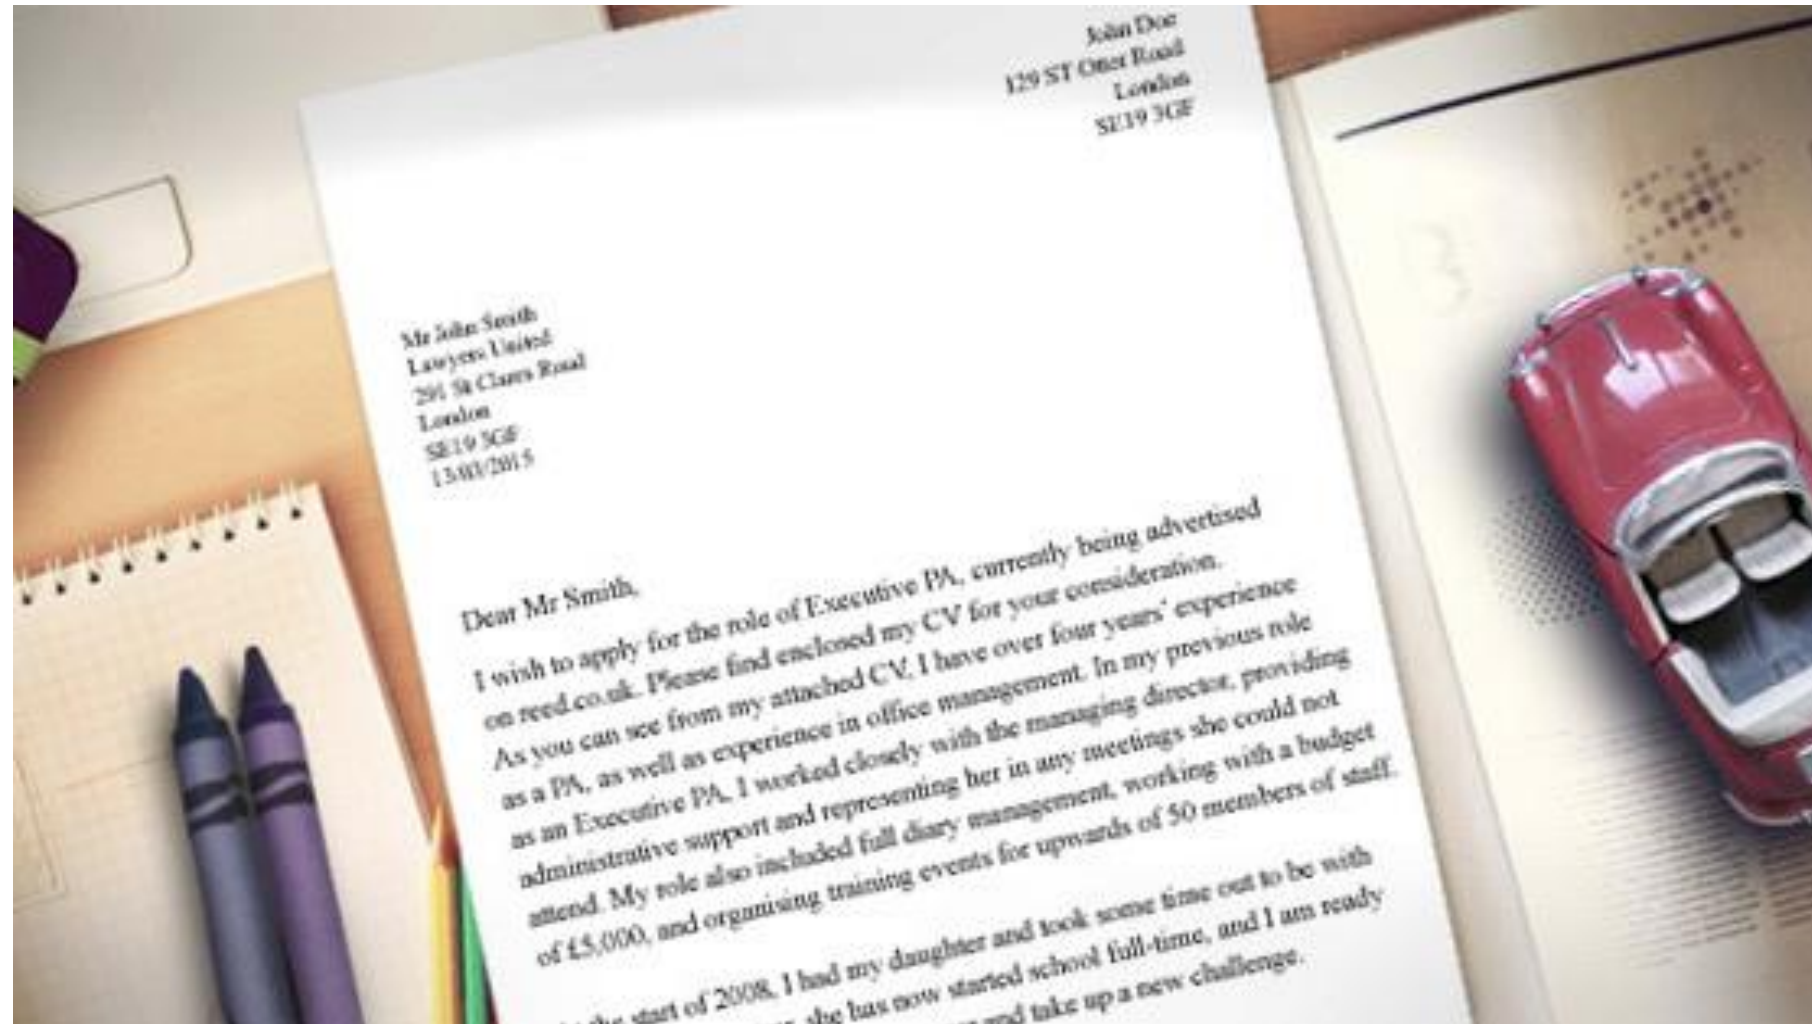 John Doe
129 ST Otter Road
London
SE19 3GF
Mr John Smith
Lawyers United
291 St Clares Road
London
SE19 3GF
13/03/2015
Dear Mr Smith,
I wish to apply for the role of Executive PA, currently being advertised
on reed.co.uk. Please find enclosed my CV for your consideration.
As you can see from my attached CV, I have over four years' experience
as a PA, as well as experience in office management. In my previous role
as an Executive PA, I worked closely with the managing director, providing
administrative support and representing her in any meetings she could not
attend. My role also included full diary management, working with a budget
of £5,000, and organising training events for upwards of 50 members of staff.
the start of 2008, I had my daughter and took some time out to be with
she has now started school full-time, and I am ready
and take up a new challenge.